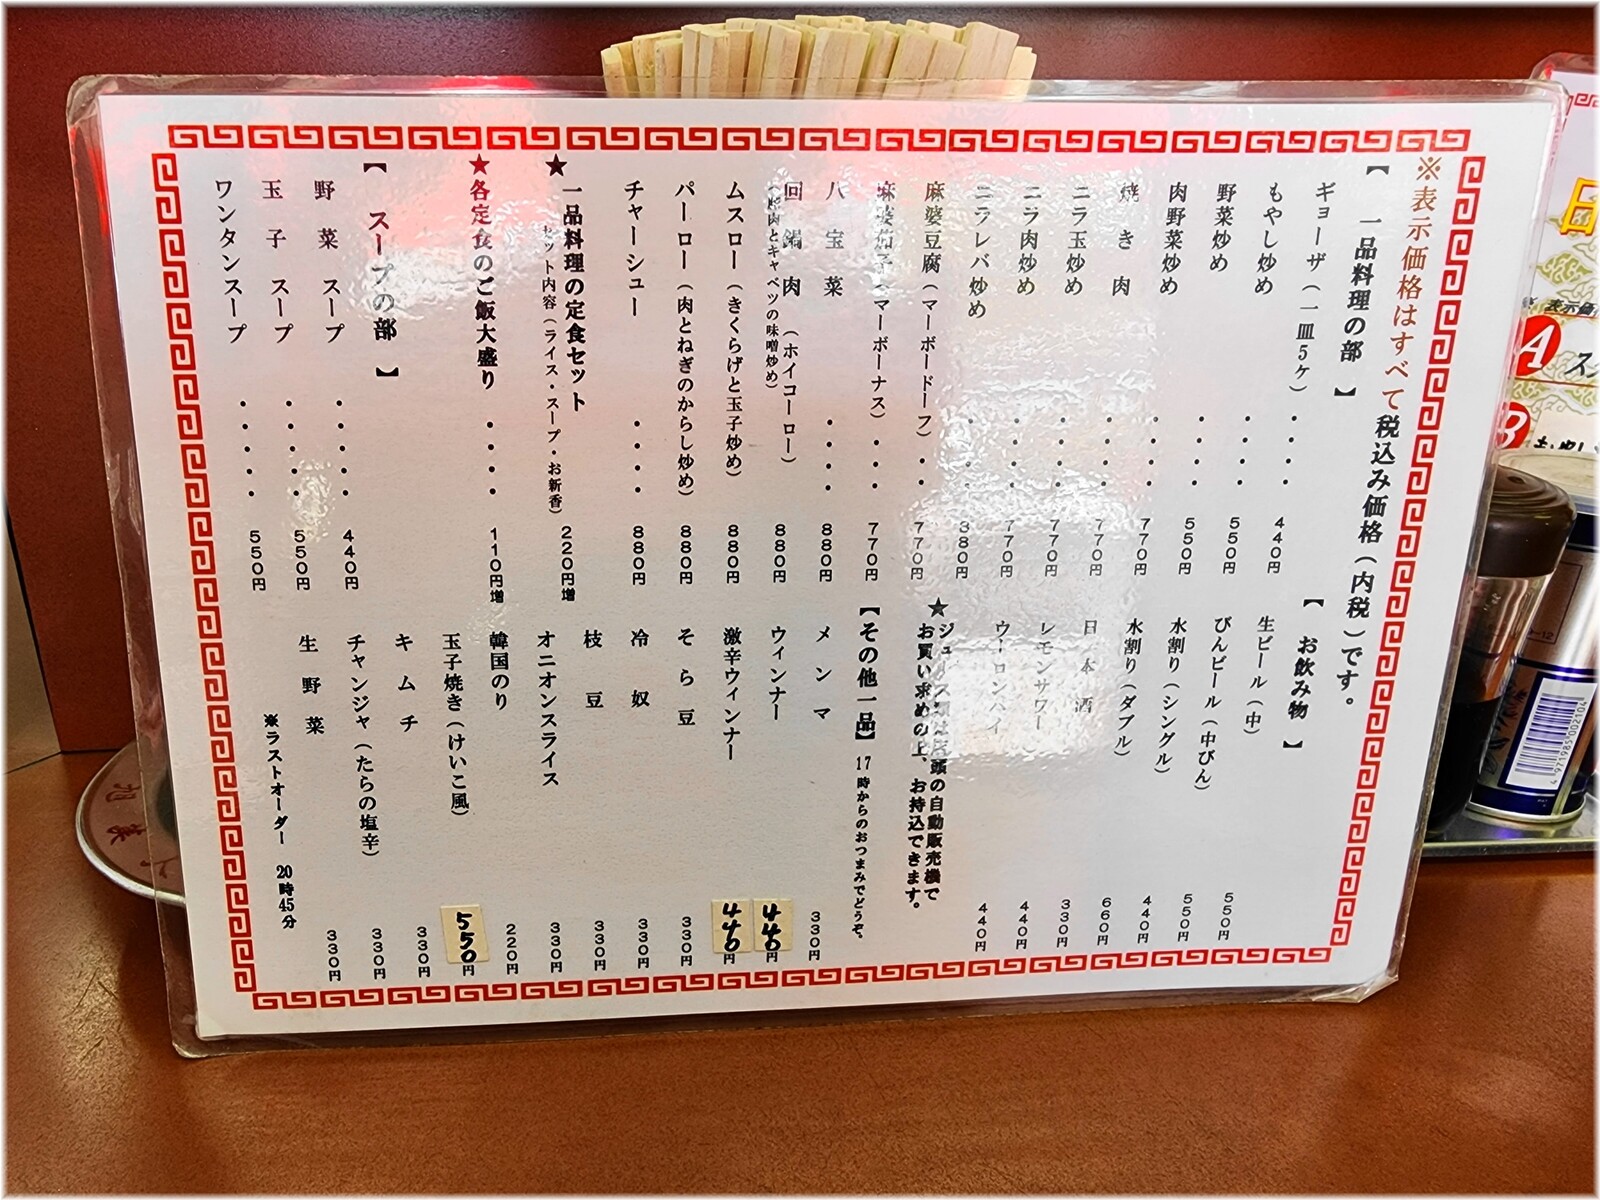 ※表示価格はすべて税込み価格(内税)です。
【 一品料理の部 】
ギョーザ(一皿5ケ)・・・・440円
もやし炒め・・・・550円
野菜炒め・・・・550円
肉野菜炒め・・・・770円
焼き肉・・・・770円
ニラ玉炒め・・・・770円
ニラ肉炒め・・・・770円
ニラレバ炒め・・・・880円
麻婆豆腐(マーボードーフ)・・770円
麻婆茄子(マーボーナス)・・・770円
八宝菜・・・・880円
回鍋肉(ホイコーロー) 880円
(豚肉とキャベツの味噌炒め)
ムスロー(きくらげと玉子炒め) 880円
パーロー(肉とねぎのからし炒め) 880円
チャーシュー・・・・880円
★一品料理の定食セット 220円増
セット内容(ライス・スープ・お新香)
★各定食のご飯大盛り・・・・110円増
【 スープの部 】
野菜スープ・・・・・440円
玉子スープ・・・・・550円
ワンタンスープ・・・・・550円
【 お飲み物 】
生ビール(中) 550円
びんビール(中びん) 550円
水割り(シングル) 440円
水割り(ダブル) 660円
日本酒 330円
レモンサワー 440円
ウーロンハイ 440円
★ジュース類は店頭の自動販売機で
お買い求めの上、お持込できます。
【その他一品】17時からのおつまみでどうぞ。
メンマ 330円
ウィンナー 440円
激辛ウィンナー 440円
そら豆 330円
冷奴 330円
枝豆 330円
オニオンスライス 330円
韓国のり 220円
玉子焼き(けいこ風) 550円
キムチ 330円
チャンジャ(たらの塩辛) 330円
生野菜 330円
※ラストオーダー 20時45分
表示価
A
B
もやし
4971985002104
旭